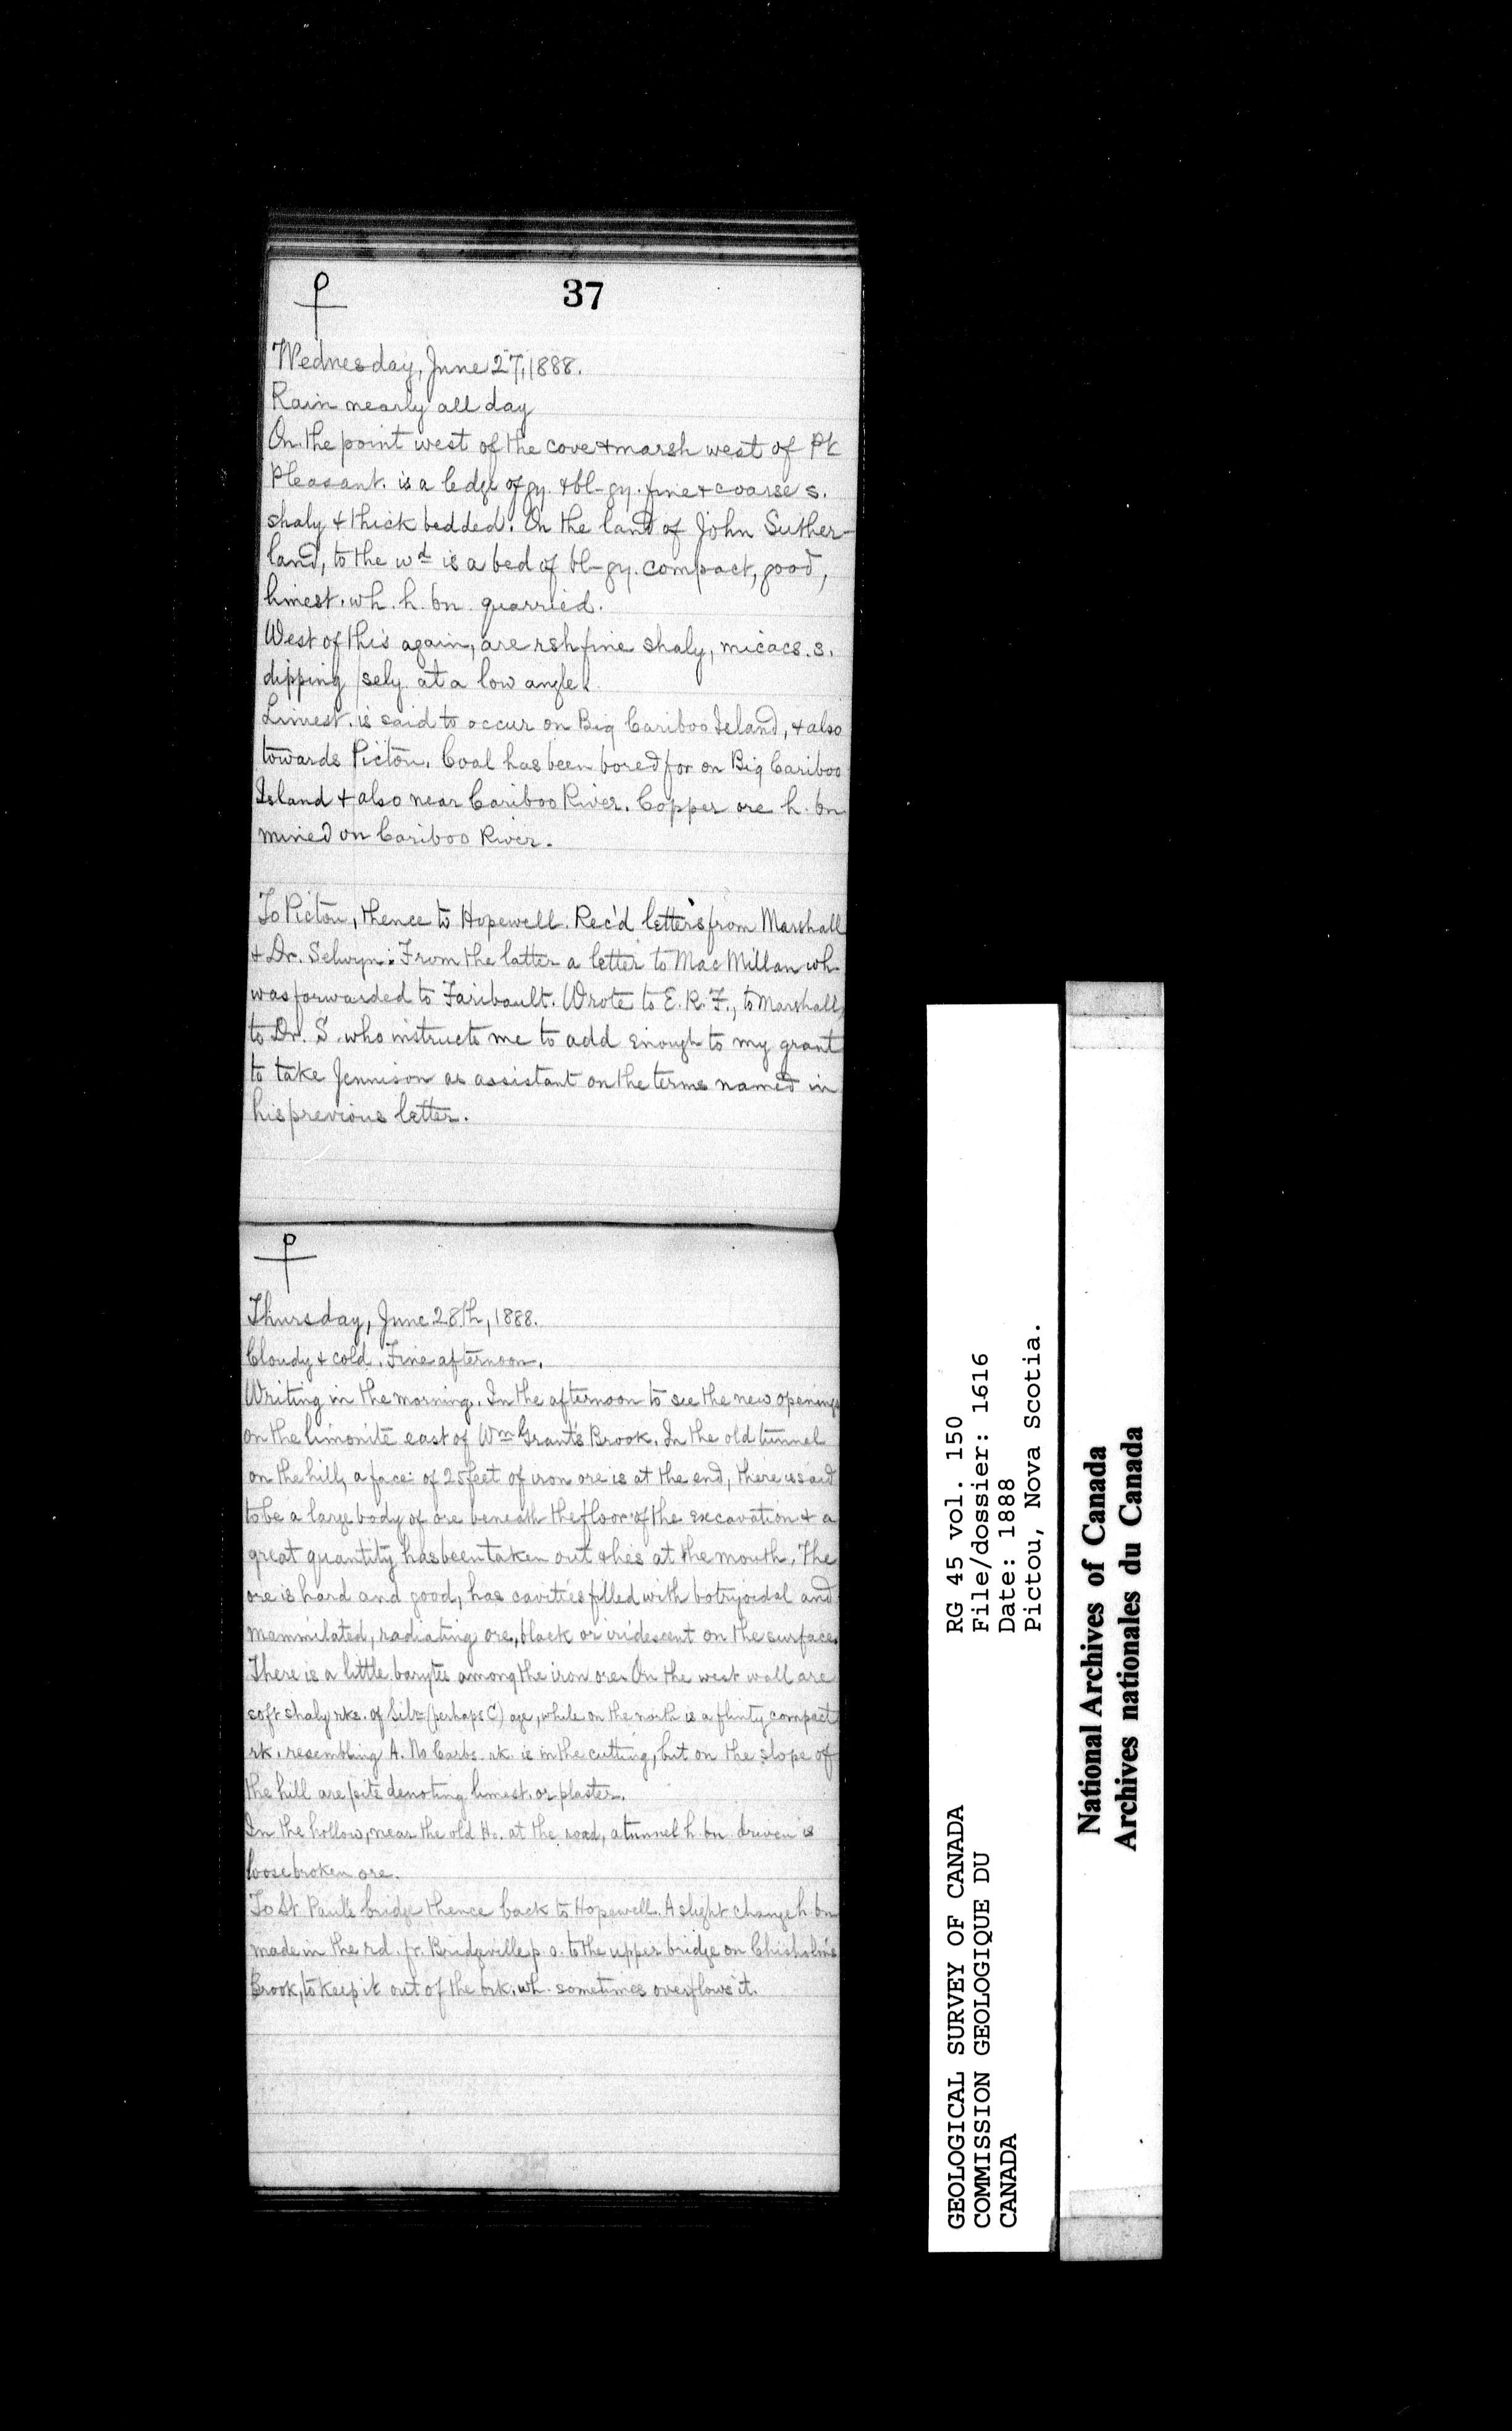 37
Wednesday, June 27, 1888.
Rain nearly all day
On the point west of the cove & marsh west of Pt.
Pleasant. is a ledge of gy. & bl-gy. fine & coarse s.
shaly & thick bedded. On the land of John Suther-
land, to the wd is a bed of bl-gy. compact, good,
limest. wh. h. bn. quarried.
West of this again, are rsh fine shaly, micacs. s.
dipping sely. at a low angle.
Limest. is said to occur on Big Cariboo Island, & also
towards Pictou. Coal has been bored for on Big Cariboo
Island & also near Cariboo River. Copper ore h. bn.
mined on Cariboo River.
To Pictou, thence to Hopewell. Rec'd letters from Marshall
& Dr. Selwyn: From the latter a letter to MacMillan wh.
was forwarded to Faribault. Wrote to E. R. F., to Marshall,
to Dr. S. who instructs me to add enough to my grant
to take Jennison as assistant on the terms named in
his previous letter.
Thursday, June 28th, 1888.
Cloudy & cold. Fine afternoon.
Writing in the morning. In the afternoon to see the new openings
on the limonite east of Wm Grant's Brook. In the old tunnel
on the hill, a face of 25 feet of iron ore is at the end, there is said
to be a large body of ore beneath the floor of the excavation & a
great quantity has been taken out & lies at the mouth. The
ore is hard and good, has cavities filled with botryoidal and
mammilated, radiating ore, black or iridescent on the surface.
There is a little barytes among the iron ore. On the west wall are
soft shaly rks. of Siln (perhaps C) age, while on the north is a flinty compact
rk. resembling A. No Carbs. rk. is in the cutting, but on the slope of
the hill are pits denoting limest. or plaster.
In the hollow, near the old Ho. at the road, a tunnel h. bn. driven is
loose broken ore.
To St. Paul's bridge thence back to Hopewell. A slight change h. bn.
made in the rd. fr. Bridgeville p. o. to the upper bridge on Chisholm's
Brook, to keep it out of the brk. wh. sometimes overflows it.
GEOLOGICAL SURVEY OF CANADA
COMMISSION GEOLOGIQUE DU
CANADA
RG 45 vol. 150
File/dossier: 1616
Date: 1888
Pictou, Nova Scotia.
National Archives of Canada
Archives nationales du Canada